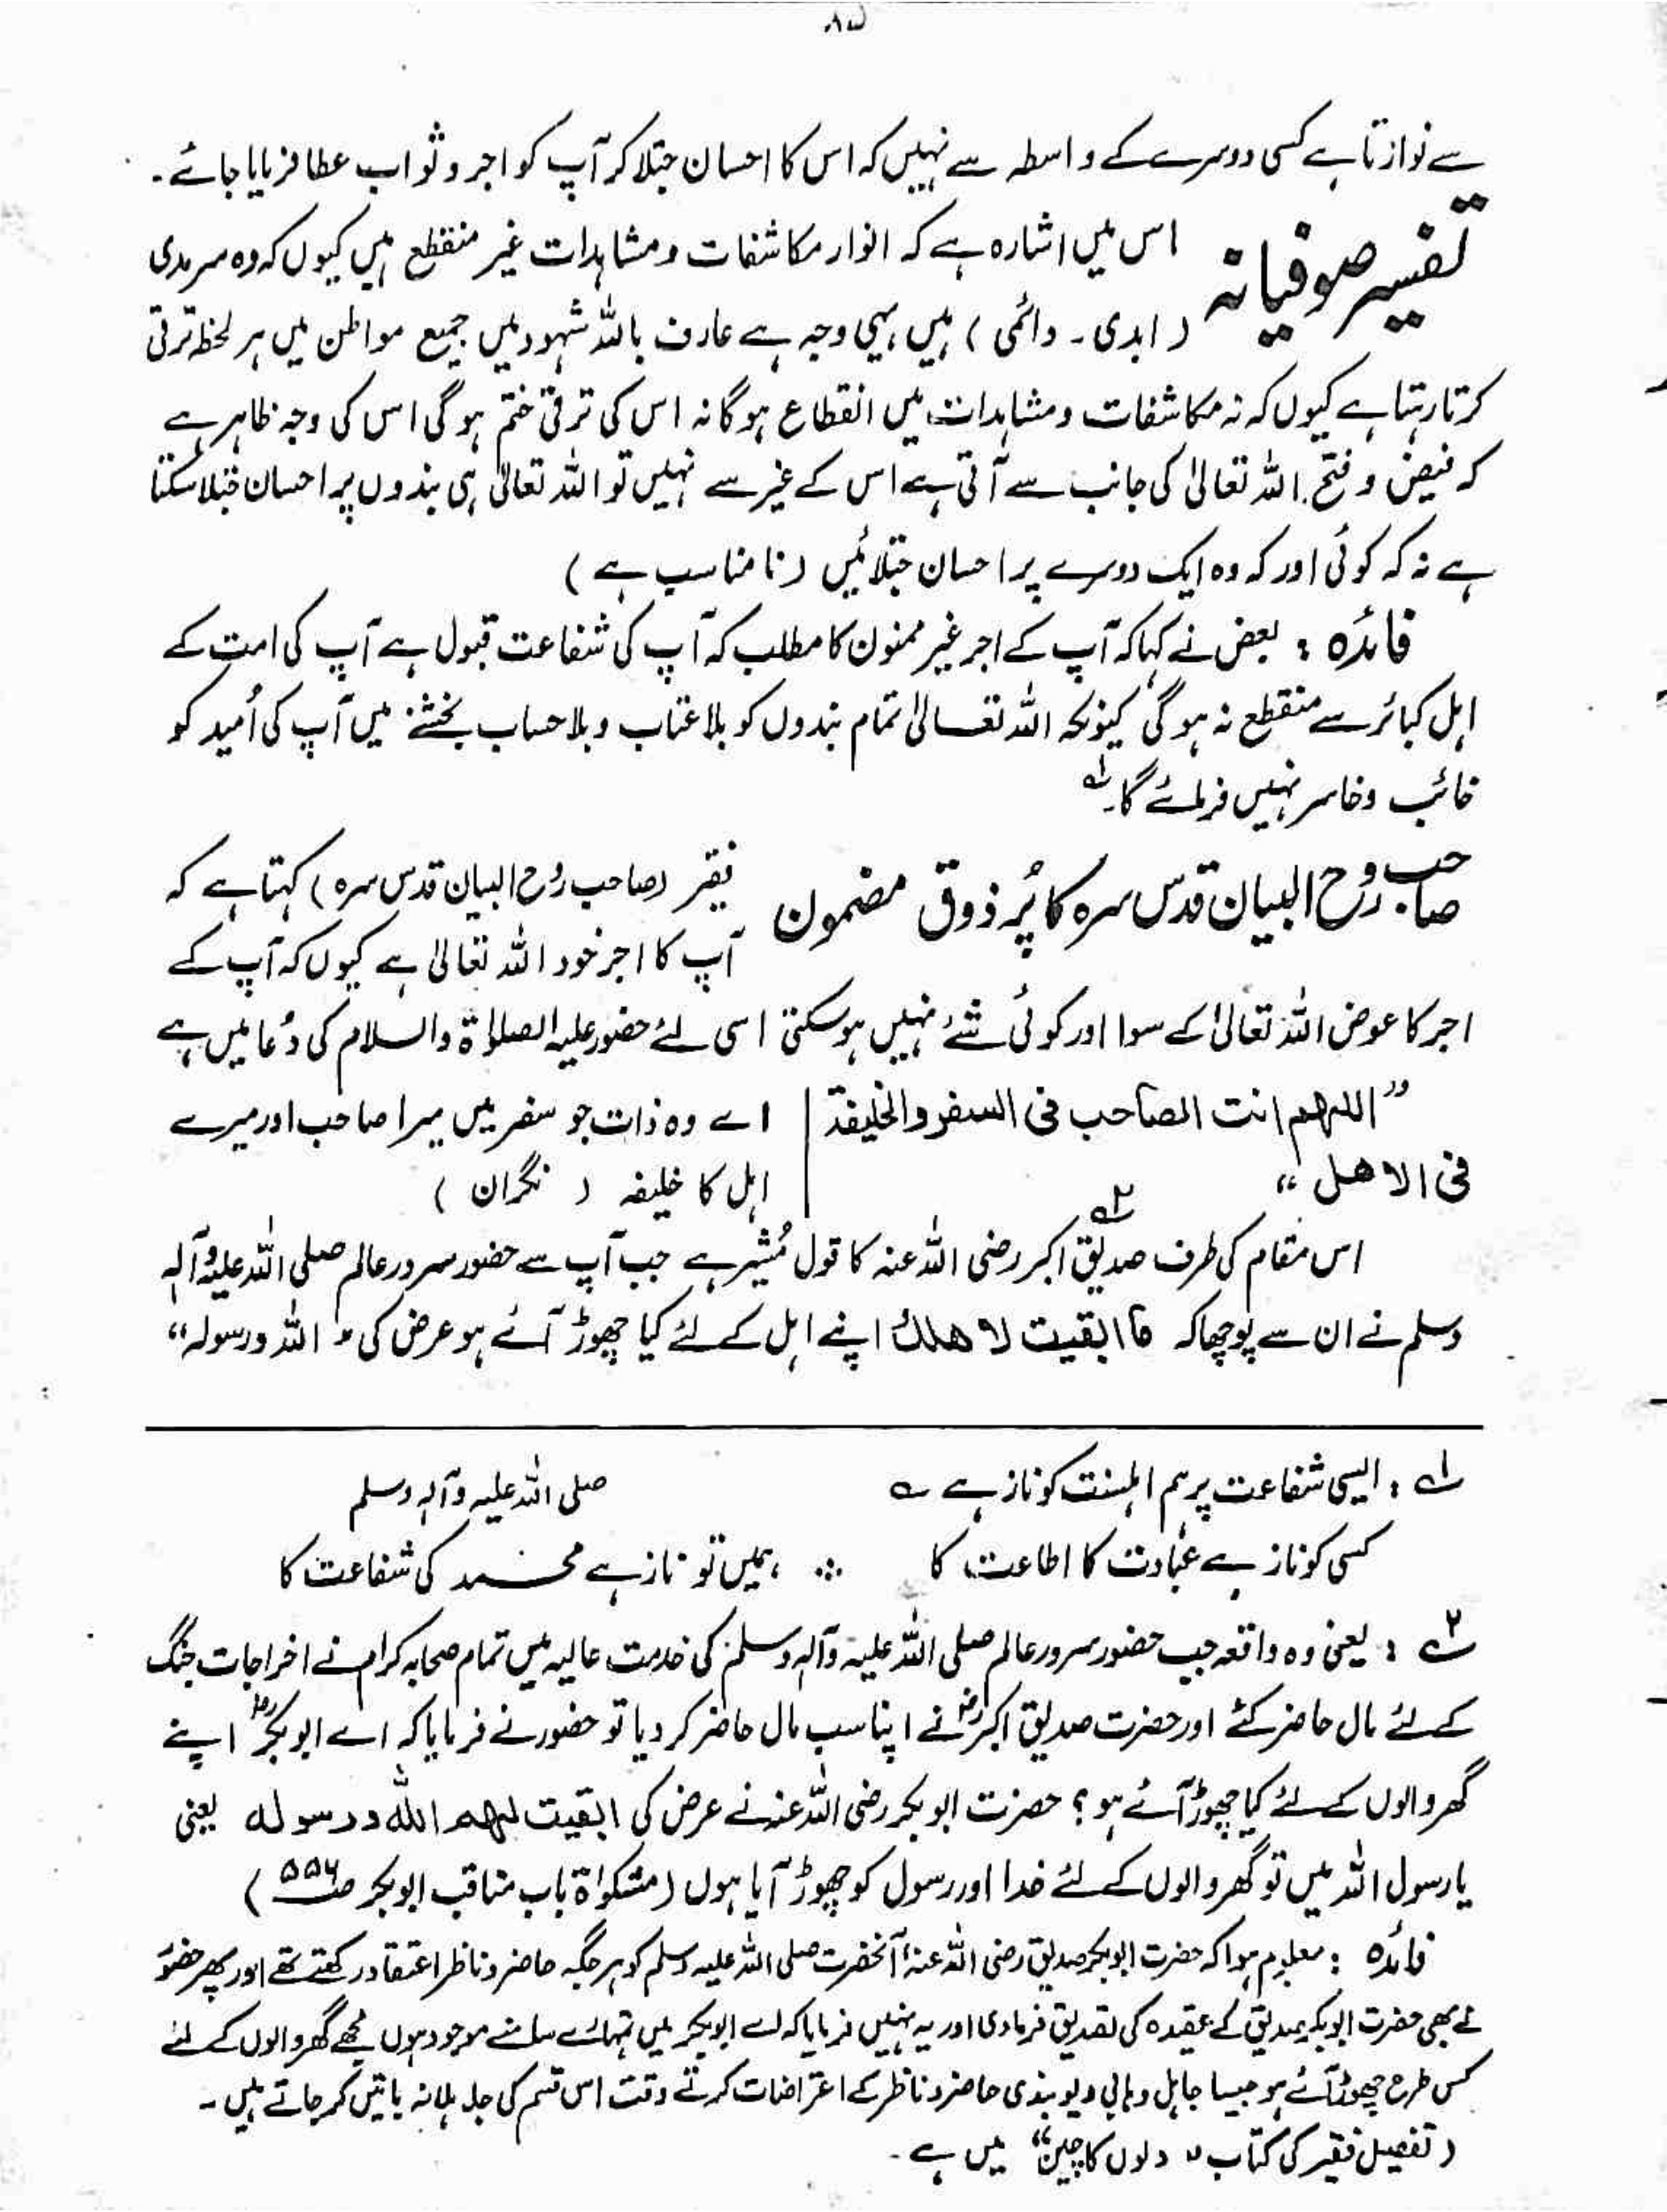 ۸۵
سے نوازتا ہے کسی دوسرے کے واسطہ سے نہیں کہ اس کا احسان جتلا کر آپ کو اجر و ثواب عطا فرمایا جائے۔
تفسیر صوفیانہ
اس میں اشارہ ہے کہ انوار مکاشفات و مشاہدات غیر منقطع ہیں کیوں کہ وہ سرمدی
(ابدی۔ دائمی) ہیں یہی وجہ ہے عارف باللہ شہود میں جمیع مواطن میں ہر لحظہ ترقی
کرتا رہتا ہے کیوں کہ نہ مکاشفات و مشاہدات میں انقطاع ہوگا نہ اس کی ترقی ختم ہوگی اس کی وجہ ظاہر ہے
کہ فیض و فتح اللہ تعالیٰ کی جانب سے آتی ہے اس کے غیر سے نہیں تو اللہ تعالیٰ ہی بندوں پر احسان جتلا سکتا
ہے نہ کہ کوئی اور کہ وہ ایک دوسرے پر احسان جتلائیں (نا مناسب ہے)
فائدہ : بعض نے کہا کہ آپ کے اجر غیر ممنون کا مطلب کہ آپ کی شفاعت قبول ہے آپ کی امت کے
اہل کبائر سے منقطع نہ ہوگی کیونکہ اللہ تعالیٰ تمام بندوں کو بلا عتاب و بلا حساب بخشنے میں آپ کی اُمید کو
خائب و خاسر نہیں فرمائے گا۔ لے
صاحب روح البیان قدس سرہ کا پُر ذوق مضمون
فقیر (صاحب روح البیان قدس سرہ) کہتا ہے کہ
آپ کا اجر خود اللہ تعالیٰ ہے کیوں کہ آپ کے
اجر کا عوض اللہ تعالیٰ کے سوا اور کوئی شئے نہیں ہو سکتی اسی لئے حضور علیہ الصلوٰۃ والسلام کی دُعا میں ہے
”اللہم انت الصاحب فی السفر والخلیفۃ
فی الاھل“
اے وہ ذات جو سفر میں میرا صاحب اور میرے
اہل کا خلیفہ (نگران)
اس مقام کی طرف صدیق اکبر ۲ے رضی اللہ عنہ کا قول مُشیر ہے جب آپ سے حضور سرور عالم صلی اللہ علیہ وآلہ
وسلم نے ان سے پوچھا کہ ما ابقیت لاھلک اپنے اہل کے لئے کیا چھوڑ آئے ہو عرض کی ”اللہ ورسولہ“
۱ے : ایسی شفاعت پر ہم اہلسنت کو ناز ہے ؎
صلی اللہ علیہ وآلہ وسلم
کسی کو ناز ہے عبادت کا اطاعت کا ∴ ہمیں تو ناز ہے محمد کی شفاعت کا
۲ے : یعنی وہ واقعہ جب حضور سرور عالم صلی اللہ علیہ وآلہ وسلم کی خدمت عالیہ میں تمام صحابہ کرام نے اخراجات جنگ
کے لئے مال حاضر کئے اور حضرت صدیق اکبرؓ نے اپنا سب مال حاضر کر دیا تو حضور نے فرمایا کہ اے ابو بکرؓ اپنے
گھر والوں کے لئے کیا چھوڑ آئے ہو؟ حضرت ابو بکر رضی اللہ عنہ نے عرض کی ابقیت لھم اللہ ورسولہ یعنی
یا رسول اللہ میں تو گھر والوں کے لئے خدا اور رسول کو چھوڑ آیا ہوں (مشکوٰۃ باب مناقب ابوبکر ص۵۵۶)
فائدہ : معلوم ہوا کہ حضرت ابوبکر صدیق رضی اللہ عنہ آنحضرت صلی اللہ علیہ وسلم کو ہر جگہ حاضر و ناظر اعتقاد رکھتے تھے اور پھر حضور
نے بھی حضرت ابوبکر صدیق کے عقیدہ کی تصدیق فرما دی اور یہ نہیں فرمایا کہ اے ابوبکر میں تمہارے سامنے موجود ہوں مجھے گھر والوں کے لئے
کس طرح چھوڑ آئے ہو جیسا جاہل وہابی دیوبندی حاضر و ناظر کے اعتراضات کرتے وقت اس قسم کی جاہلانہ باتیں کر جاتے ہیں۔
(تفصیل فقیر کی کتاب ”دلوں کا چین“ میں ہے۔